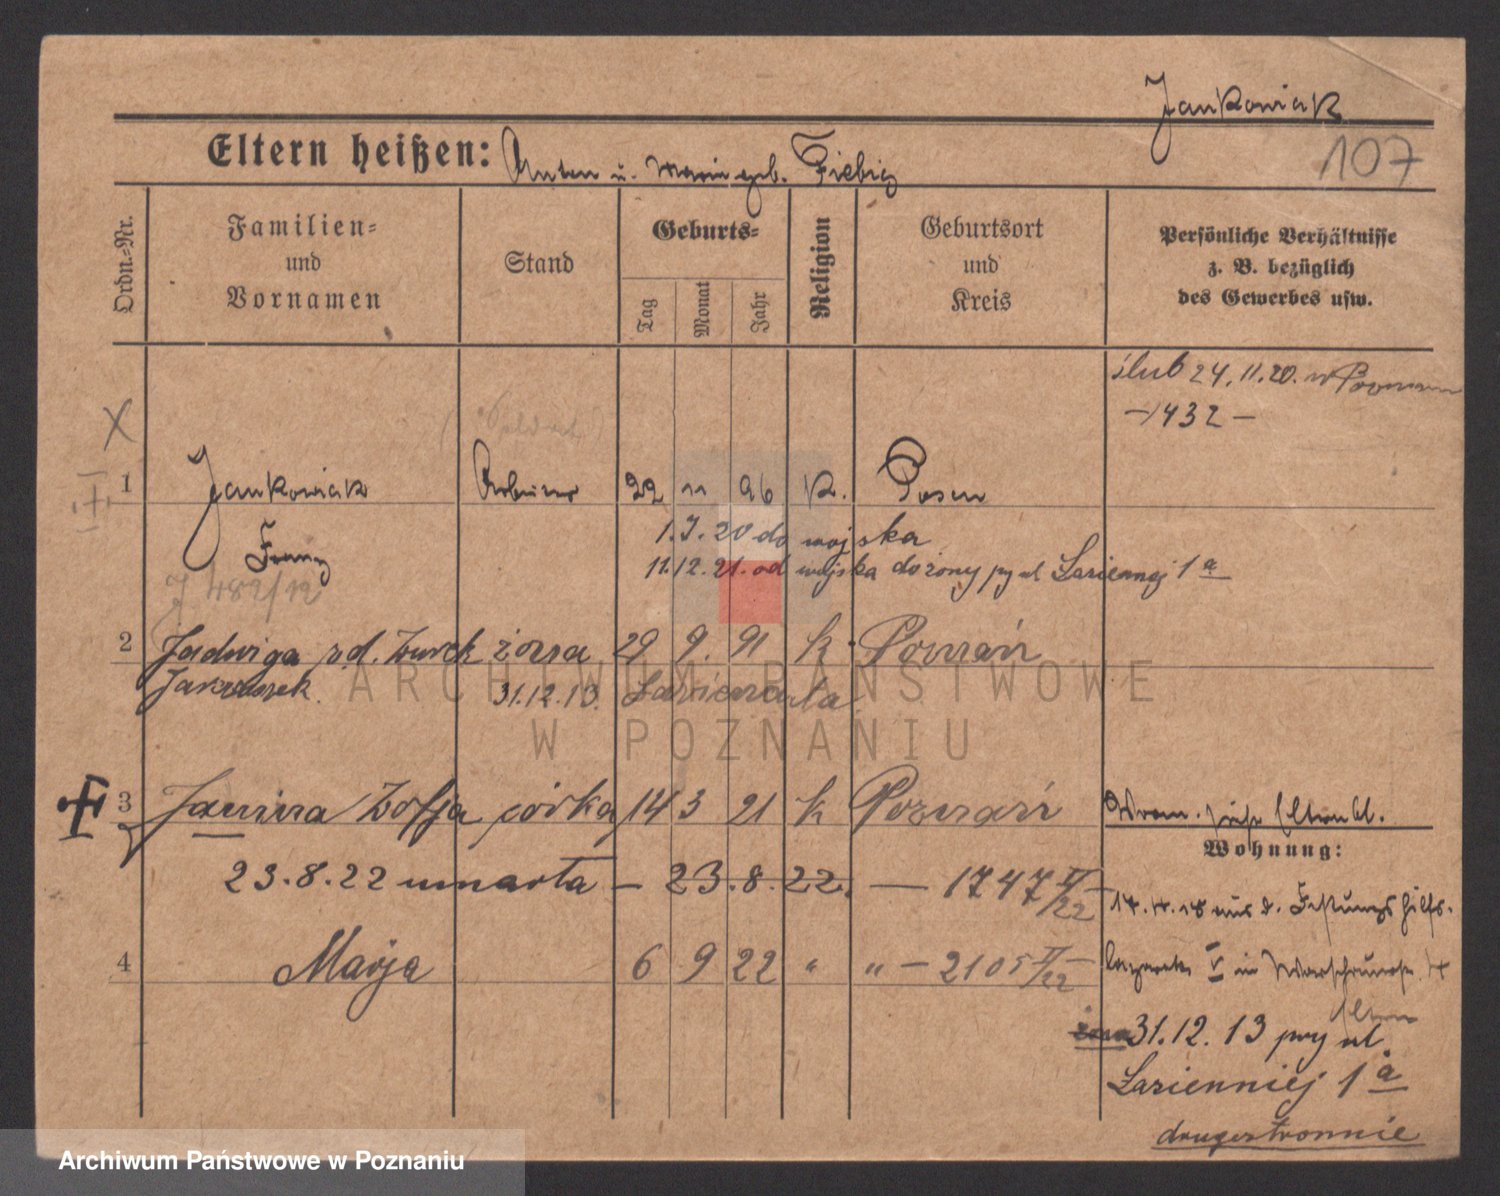 Jankowiak
107
Eltern heißen: Anton u. Maria geb. Fiebig
Ordn.-Nr.
Familien-
und
Vornamen
Stand
Geburts-
Tag
Monat
Jahr
Religion
Geburtsort
und
Kreis
Persönliche Verhältnisse
z. B. bezüglich
des Gewerbes usw.
ślub 24.11.20. w Poznaniu
— 1432 —
X
1 Jankowiak Arbeiter 22 11 96 K. Posen
Franz
1.7.20 do wojska
11.12.21. od wojska do żony py ul Łaziennej 1a
J 482/12
2 Jadwiga rd. Żurek żona 29 9. 91 k. Poznań
31.12.13. Łazienna 1a
3 Janina Zofja córka 14 3 21 k Poznań
Wohnung:
23.8.22 umarła — 23.8.22. — 1747 II/22
17.4.18 aus d. Festungshilfs-
4 Marja 6 9 22 " " — 2105 II/22
lazarett V in Warschau
Eltern
31.12.13 pry ul.
Łaziennej 1a
drugostronnie
ARCHIWUM PAŃSTWOWE
W POZNANIU
Archiwum Państwowe w Poznaniu